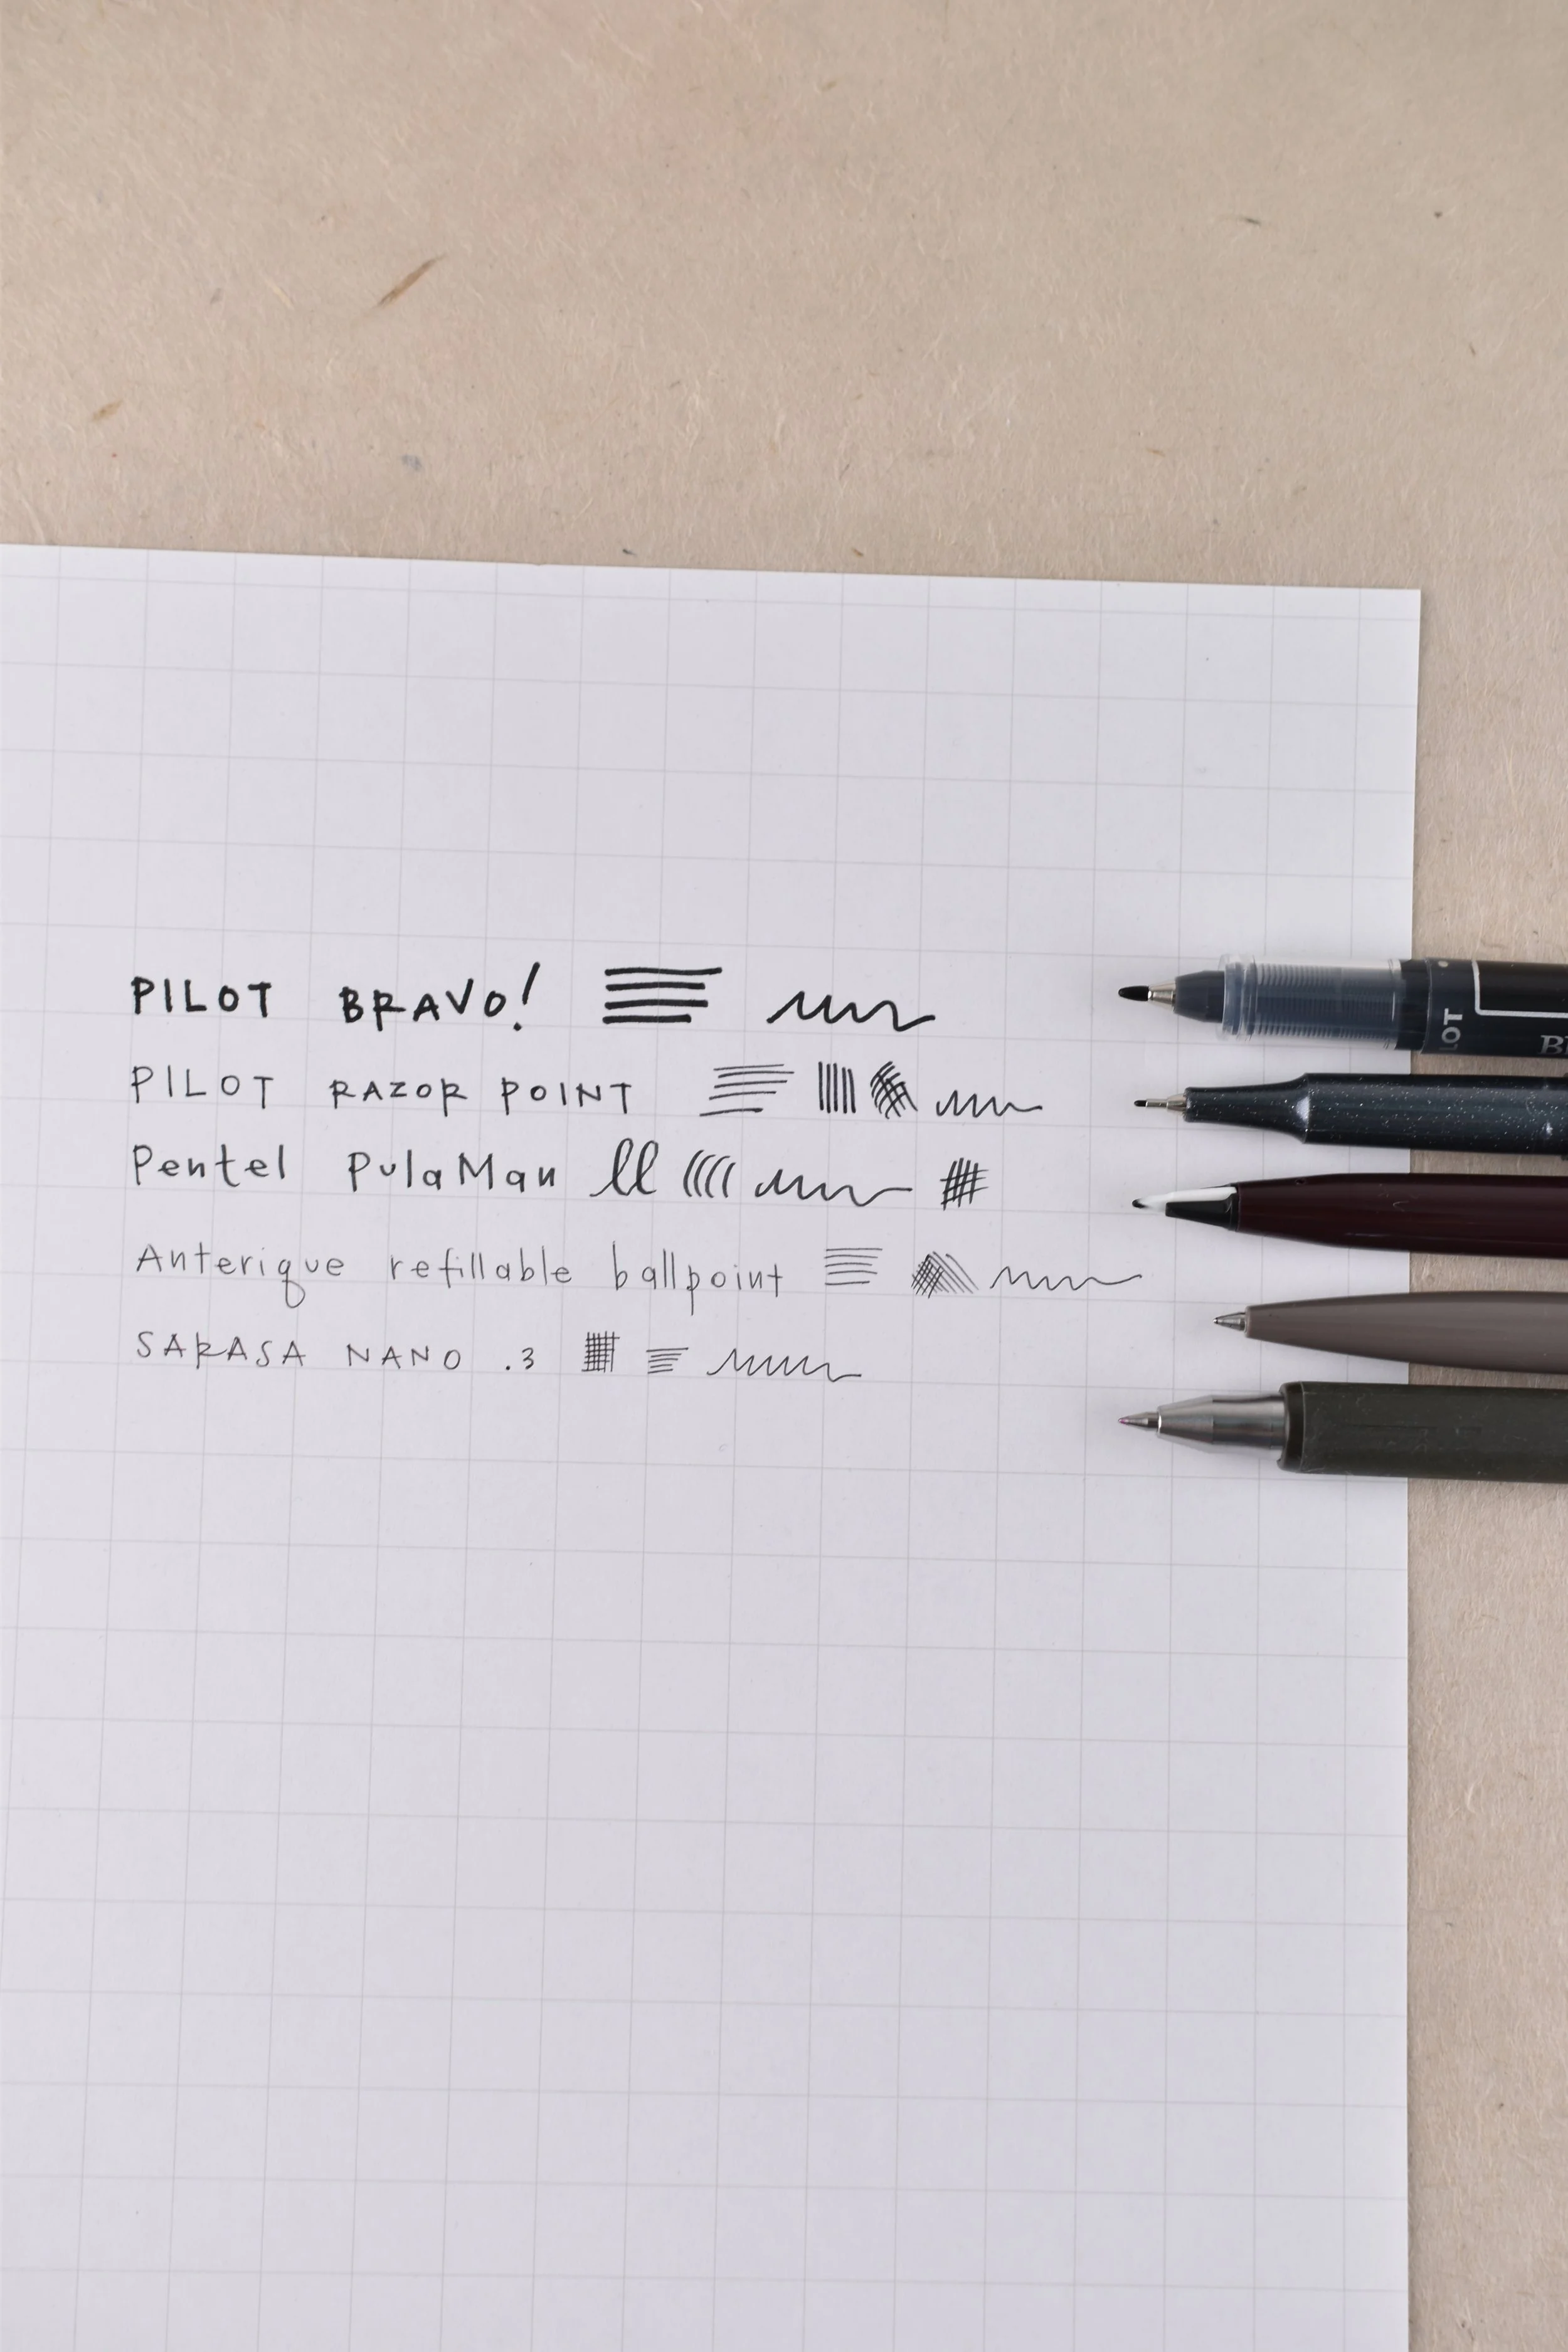 PILOT BRAVO!
PILOT RAZOR POINT
Pentel PulaMan
Anterique refillable ballpoint
SARASA NANO .3